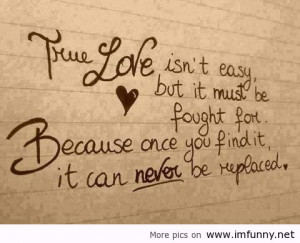 True Love isn't easy,
but it must be
fought for.
Because once you find it,
it can never be replaced.
More pics on www.imfunny.net